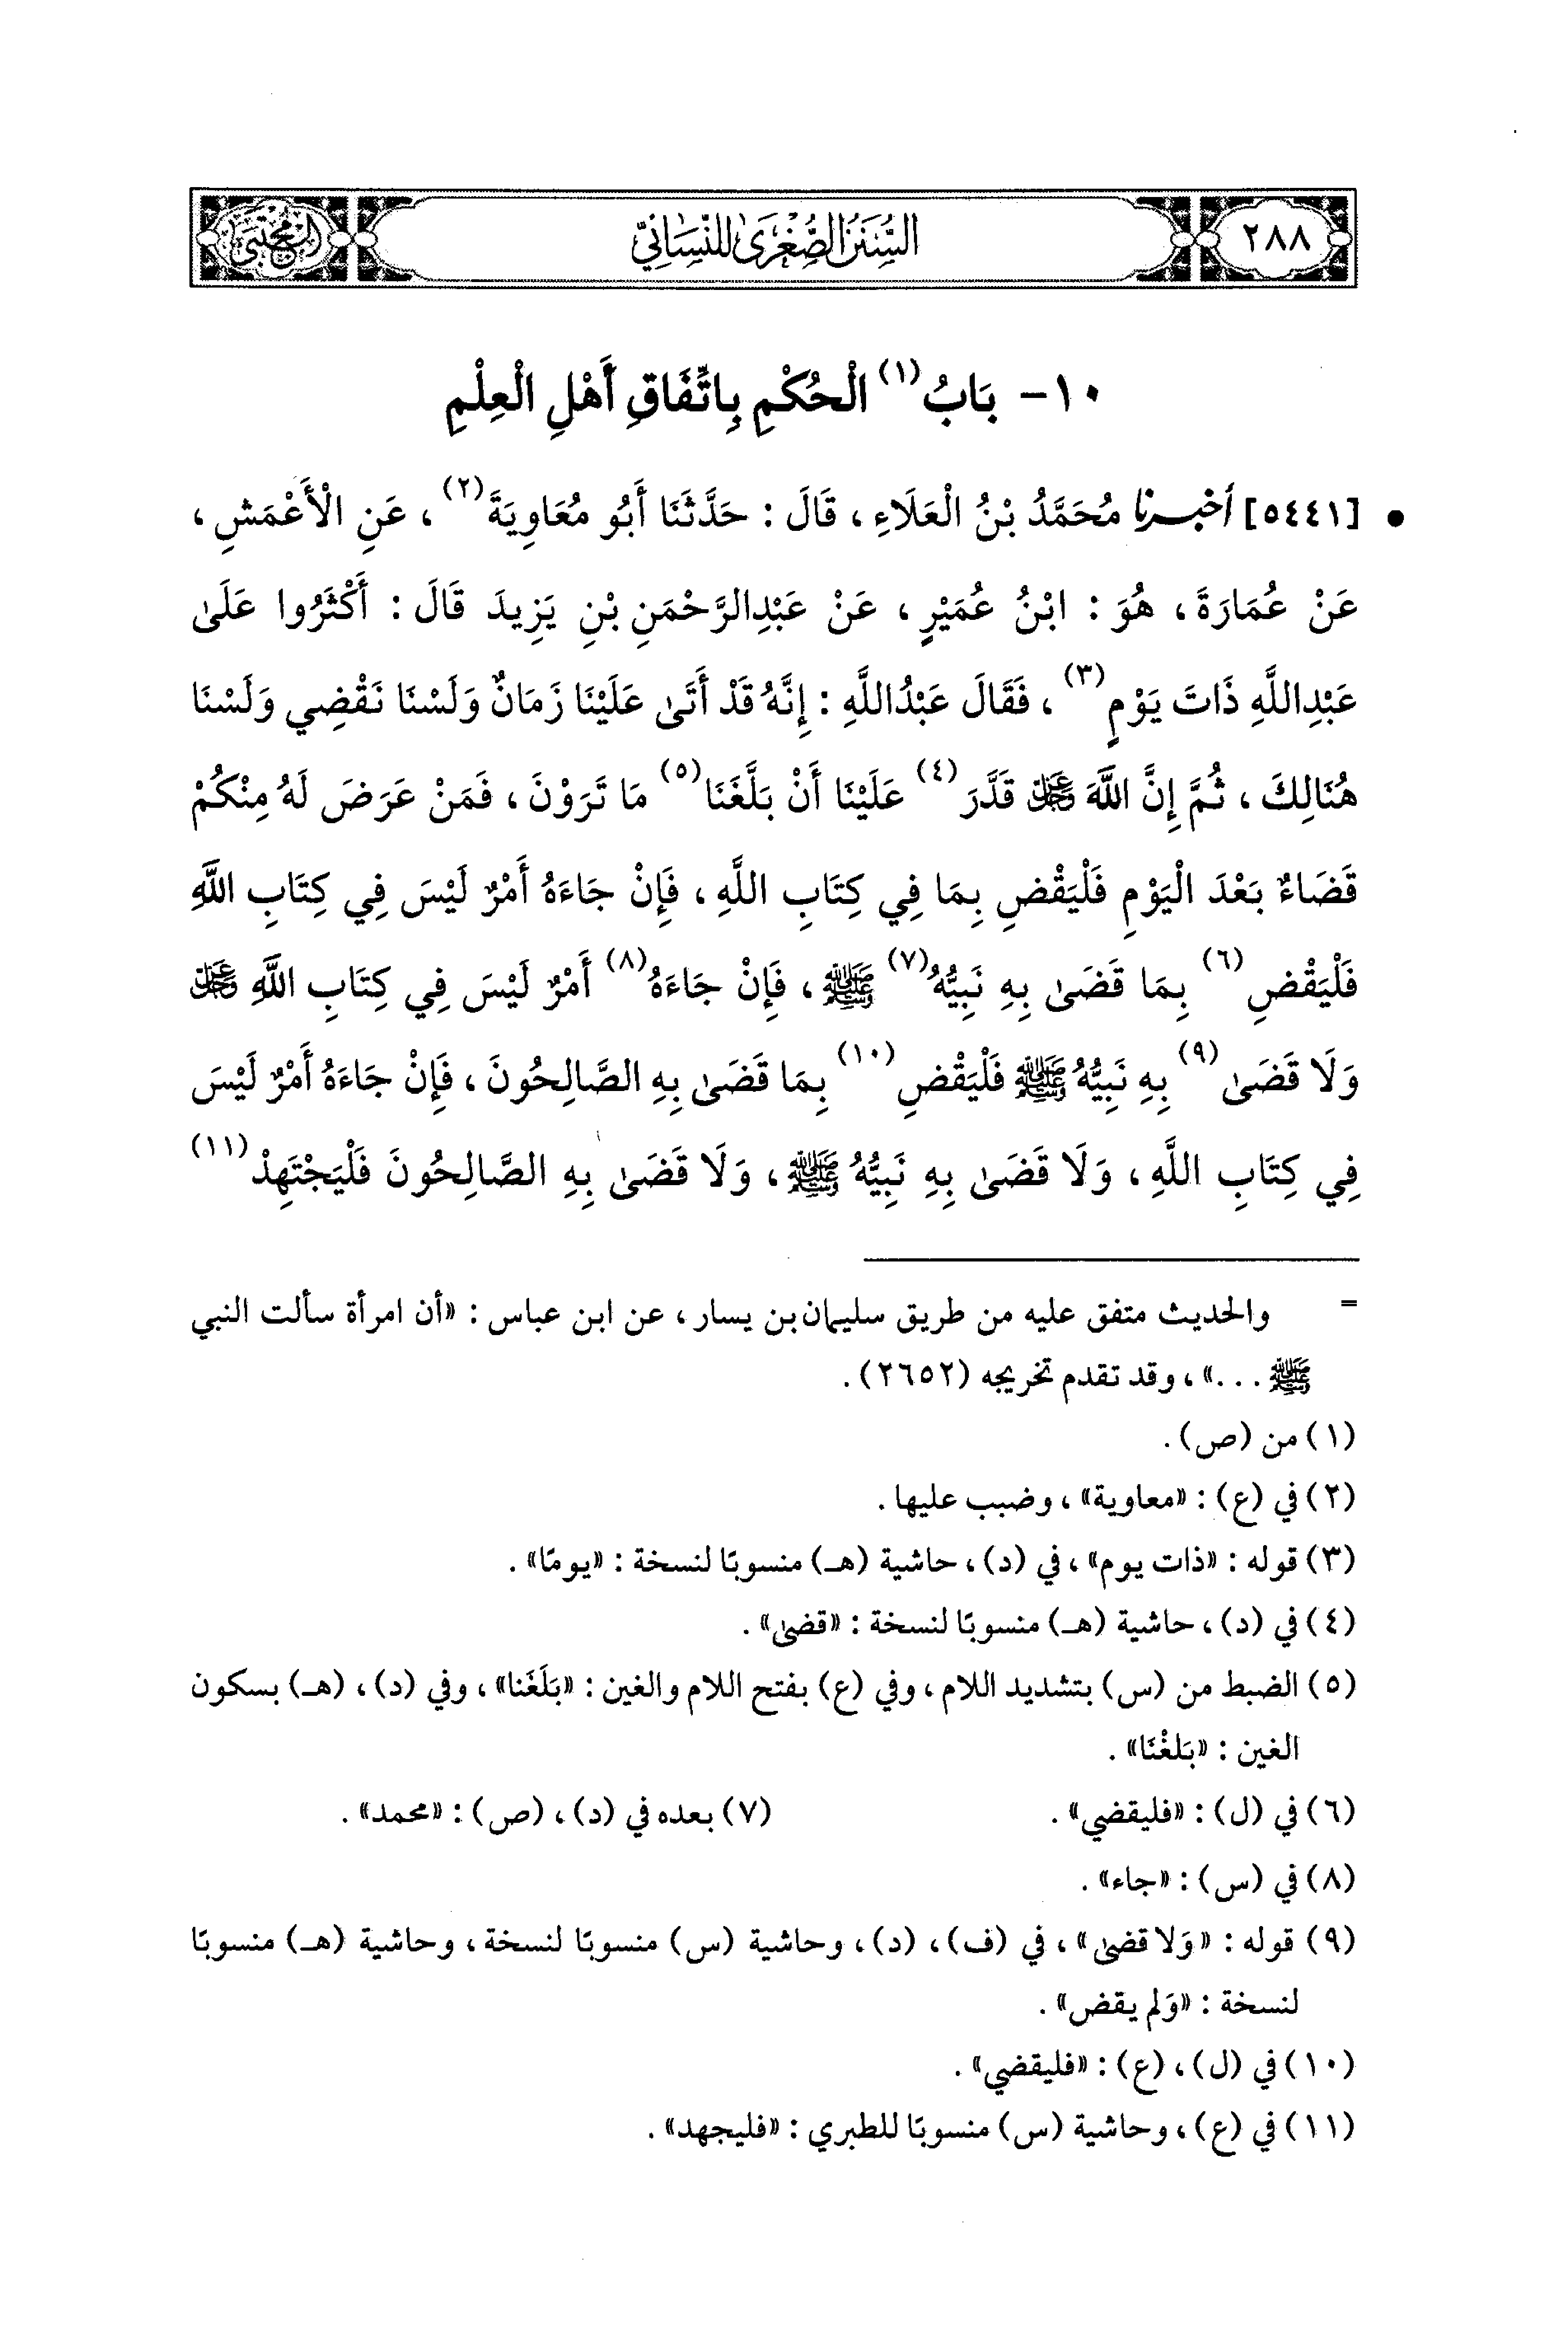 ٢٨٨ السُّنَنُ الصُّغْرَىٰ لِلنَّسَائِيِّ المجتبى
١٠- بَابُ(١) الْحُكْمِ بِاتِّفَاقِ أَهْلِ الْعِلْمِ
• [٥٤٤١] أَخْبَرَنَا مُحَمَّدُ بْنُ الْعَلَاءِ ، قَالَ : حَدَّثَنَا أَبُو مُعَاوِيَةَ(٢) ، عَنِ الْأَعْمَشِ ،
عَنْ عُمَارَةَ ، هُوَ : ابْنُ عُمَيْرٍ ، عَنْ عَبْدِالرَّحْمَنِ بْنِ يَزِيدَ قَالَ : أَكْثَرُوا عَلَىٰ
عَبْدِاللَّهِ ذَاتَ يَوْمٍ(٣) ، فَقَالَ عَبْدُاللَّهِ : إِنَّهُ قَدْ أَتَىٰ عَلَيْنَا زَمَانٌ وَلَسْنَا نَقْضِي وَلَسْنَا
هُنَالِكَ ، ثُمَّ إِنَّ اللَّهَ عَزَّ وَجَلَّ قَدَّرَ(٤) عَلَيْنَا أَنْ بَلَّغَنَا(٥) مَا تَرَوْنَ ، فَمَنْ عَرَضَ لَهُ مِنْكُمْ
قَضَاءٌ بَعْدَ الْيَوْمِ فَلْيَقْضِ بِمَا فِي كِتَابِ اللَّهِ ، فَإِنْ جَاءَهُ أَمْرٌ لَيْسَ فِي كِتَابِ اللَّهِ
فَلْيَقْضِ(٦) بِمَا قَضَىٰ بِهِ نَبِيُّهُ(٧) ﷺ ، فَإِنْ جَاءَهُ(٨) أَمْرٌ لَيْسَ فِي كِتَابِ اللَّهِ عَزَّ وَجَلَّ
وَلَا قَضَىٰ(٩) بِهِ نَبِيُّهُ ﷺ فَلْيَقْضِ(١٠) بِمَا قَضَىٰ بِهِ الصَّالِحُونَ ، فَإِنْ جَاءَهُ أَمْرٌ لَيْسَ
فِي كِتَابِ اللَّهِ ، وَلَا قَضَىٰ بِهِ نَبِيُّهُ ﷺ ، وَلَا قَضَىٰ بِهِ الصَّالِحُونَ فَلْيَجْتَهِدْ(١١)
= والحديث متفق عليه من طريق سليمان بن يسار ، عن ابن عباس : «أن امرأة سألت النبي
ﷺ ...» ، وقد تقدم تخريجه (٢٦٥٢) .
(١) من (ص) .
(٢) في (ع) : «معاوية» ، وضبب عليها .
(٣) قوله : «ذات يوم» ، في (د) ، حاشية (هـ) منسوبًا لنسخة : «يومًا» .
(٤) في (د) ، حاشية (هـ) منسوبًا لنسخة : «قضىٰ» .
(٥) الضبط من (س) بتشديد اللام ، وفي (ع) بفتح اللام والغين : «بَلَغَنا» ، وفي (د) ، (هـ) بسكون
الغين : «بَلغْنَا» .
(٦) في (ل) : «فليقضي» . (٧) بعده في (د) ، (ص) : «محمد» .
(٨) في (س) : «جاء» .
(٩) قوله : «وَلا قضىٰ» ، في (ف) ، (د) ، وحاشية (س) منسوبًا لنسخة ، وحاشية (هـ) منسوبًا
لنسخة : «وَلم يقض» .
(١٠) في (ل) ، (ع) : «فليقضي» .
(١١) في (ع) ، وحاشية (س) منسوبًا للطبري : «فليجهد» .